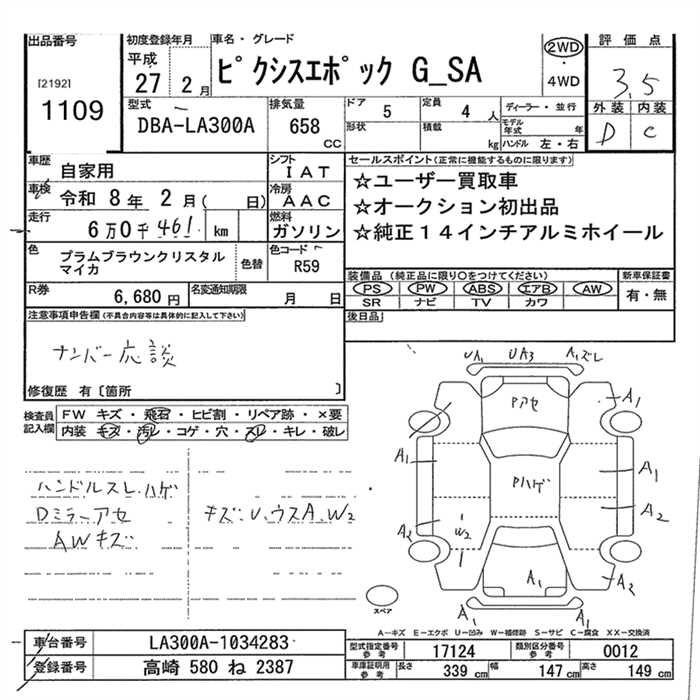 出品番号
[2192]
1109
初度登録年月
平成
27 2 月
車名・グレード
ピクシスエポック G_SA
2WD
・
4WD
評価点
3.5
外装 内装
D C
型式
DBA-LA300A
排気量
658
CC
ドア 5
定員 4 人
形状
積載 kg
ディーラー・並行
モデル年式 年
ハンドル 左・右
車歴
自家用
シフト
IAT
車検
令和 8年 2月( 日)
冷房
AAC
走行
6万0千461 km
燃料
ガソリン
色
プラムブラウンクリスタル
マイカ
色替
色コード
R59
R券
6,680 円
名変通知期限
月 日
セールスポイント(正常に機能するものに限ります)
☆ユーザー買取車
☆オークション初出品
☆純正14インチアルミホイール
装備品(純正品に限り○をつけてください)
PS PW ABS エアB AW
SR ナビ TV カワ
新車保証書
有・無
後日品
注意事項申告欄(不具合内容等は具体的に記入して下さい)
ナンバー応談
修復歴 有〔箇所 〕
検査員
記入欄
FW キズ・飛石・ヒビ割・リペア跡・×要
内装 キズ・汚レ・コゲ・穴・スレ・キレ・破レ
ハンドルスレ.ハゲ
Dミラーアセ
AWキズ
キズ.U.ウスA.W2
UA1 UA3 A1ズレ
Pアセ
A1
A1
Pハゲ
A1
A2
A2
W2
A1
A2
A1 A1
スペア
A−キズ E−エクボ U−凹み W−補修跡 S−サビ C−腐食 XX−交換済
車台番号
LA300A-1034283
登録番号
高崎 580 ね 2387
型式指定番号
参考
17124
類別区分番号
参考
0012
車庫証明用
参考
長さ 339 cm
幅 147 cm
高さ 149 cm